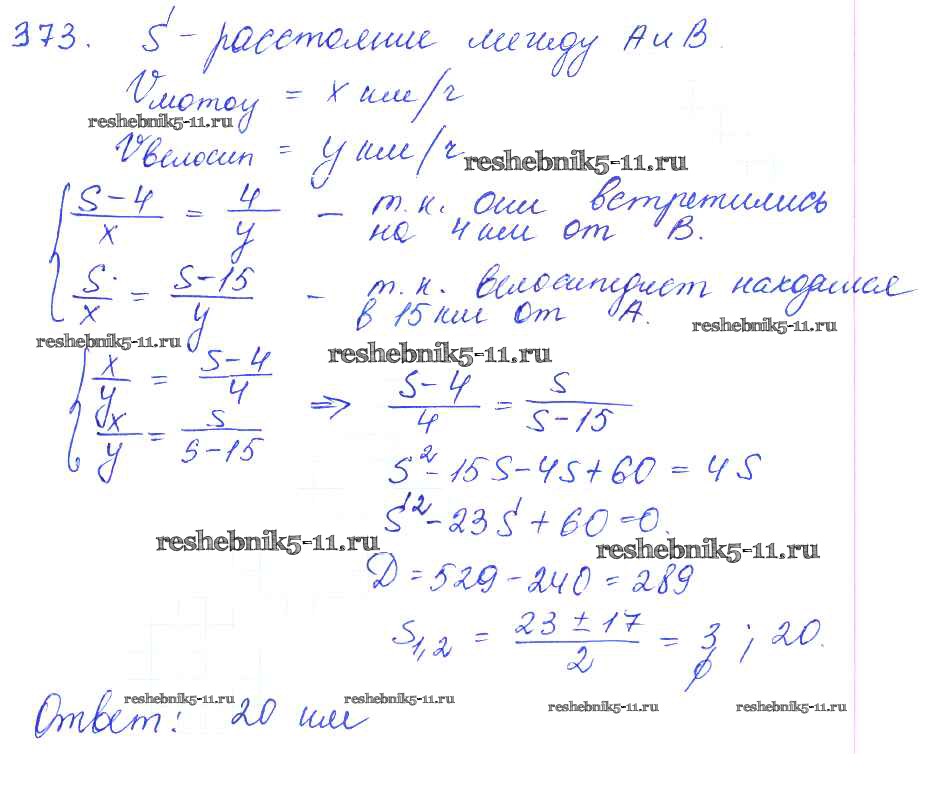 373. S - расстояние между А и В.
Vмотоц = x км/ч
reshebnik5-11.ru
Vвелосип = y км/ч
reshebnik5-11.ru
{ (S-4)/x = 4/y - т.к. они встретились
на 4 км от В.
S/x = (S-15)/y - т.к. велосипедист находился
в 15 км от А.
reshebnik5-11.ru
reshebnik5-11.ru
reshebnik5-11.ru
{ x/y = (S-4)/4
x/y = S/(S-15) => (S-4)/4 = S/(S-15)
S² - 15S - 4S + 60 = 4S
S² - 23S + 60 = 0.
reshebnik5-11.ru
reshebnik5-11.ru
D = 529 - 240 = 289
S1,2 = (23 ± 17)/2 = 3 ; 20.
reshebnik5-11.ru
reshebnik5-11.ru
reshebnik5-11.ru
reshebnik5-11.ru
Ответ: 20 км